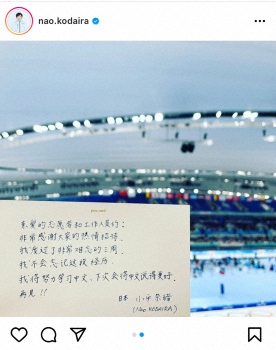 nao.kodaira
亲爱的志愿者和工作人员们:
非常感谢大家的热情招待.
我度过了非常难忘的三周.
我不会忘记这段经历.
我将努力学习中文,下次会将中文说得更好.
再见!!
日本 小平奈緒
(Nao KODAIRA)